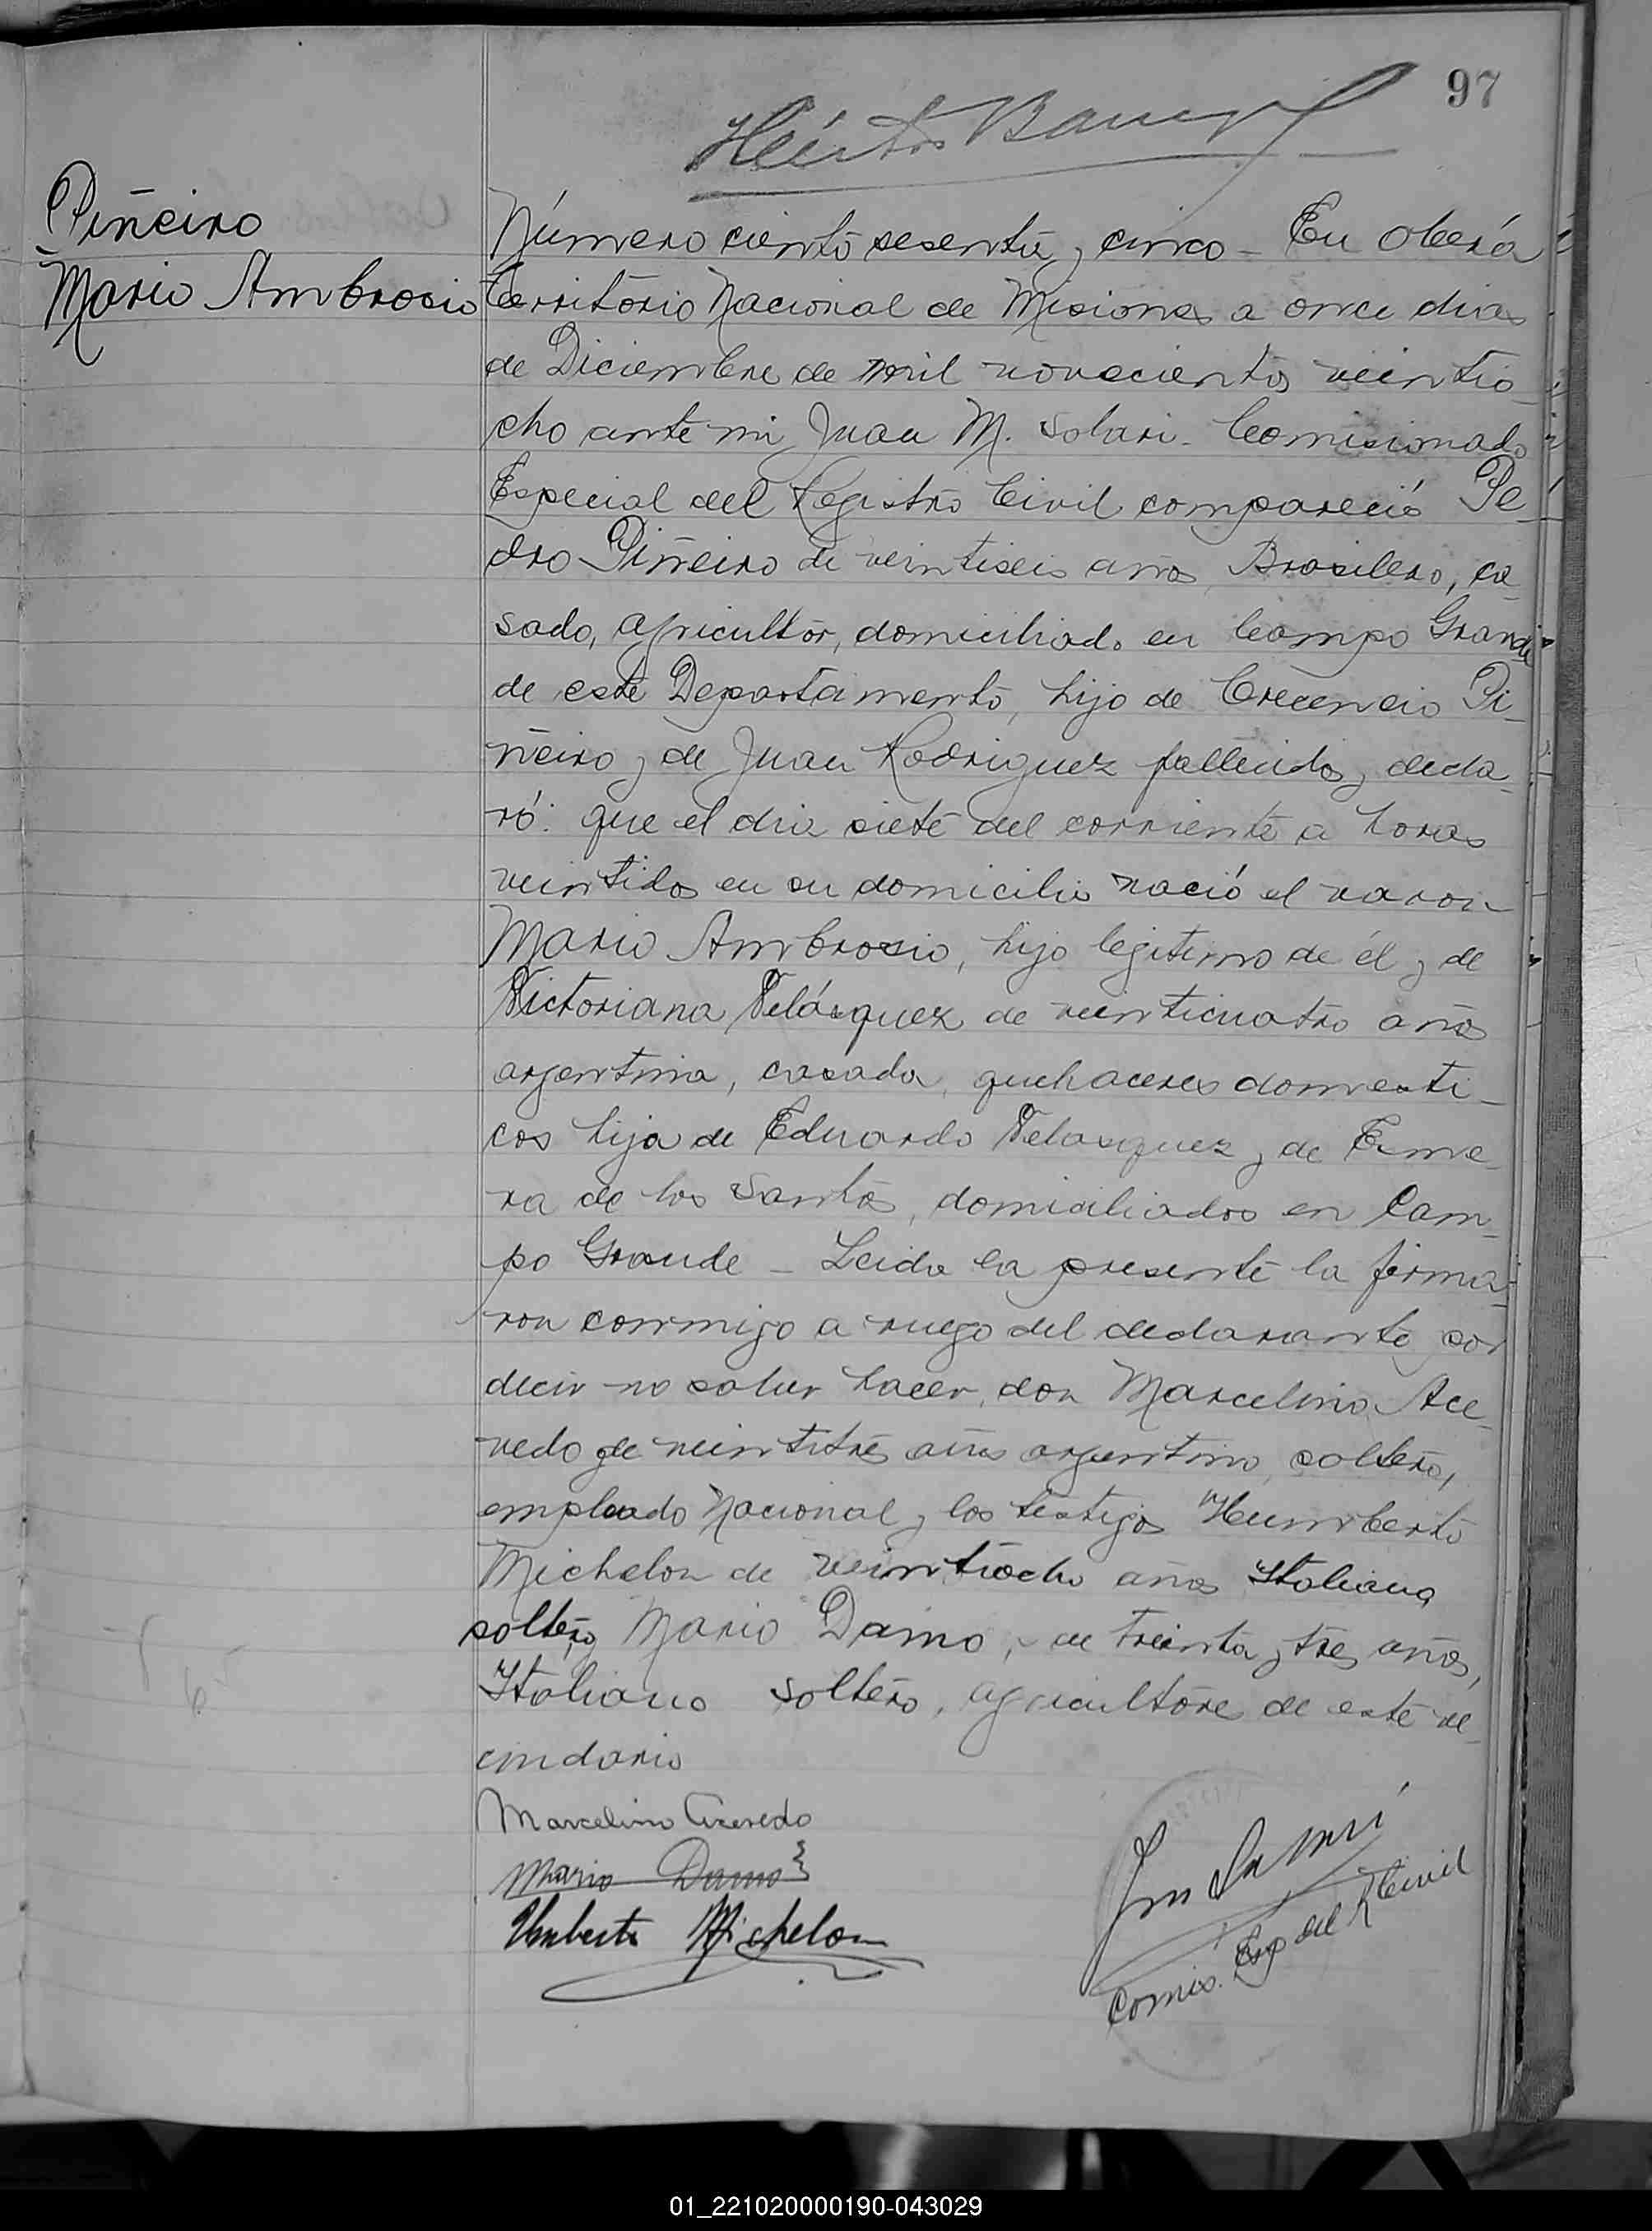 97
Piñeiro
Mario Ambrosio
Número ciento sesenta y cinco - En Oberá
Territorio Nacional de Misiones a once dias
de Diciembre de mil novecientos veintio-
cho ante mi Juan M. Solari - Comisionado
Especial del Registro Civil compareció Pe-
dro Piñeiro de veintiseis años, Brasilero, ca-
sado, agricultor, domiciliado en Campo Grande
de este Departamento, hijo de Crecencio Pi-
ñeiro y de Juan Rodriguez fallecidos y decla-
ró: que el dia siete del corriente a horas
veintidos en su domicilio nació el varon
Mario Ambrosio, hijo legitimo de él y de
Victoriana Velásquez de veinticuatro años
argentina, casada, quehaceres domesti-
cos hija de Eduardo Velasquez y de
de los Santos, domiciliados en Cam-
po Grande - Leida la presente la firma-
ron conmigo a ruego del declarante por
decir no saber hacer, don Marcelino Ace-
vedo de veintitrés años argentino, soltero,
empleado Nacional y los testigos Humberto
Michelon de veintiocho años Italiano,
soltero, Mario Damo, de treinta y tres años,
Italiano soltero, agricultore de este ve-
cindario
Marcelino Acevedo
Mario Damo
Umberto Michelon
Comis. Esp del R Civil
01_221020000190-043029